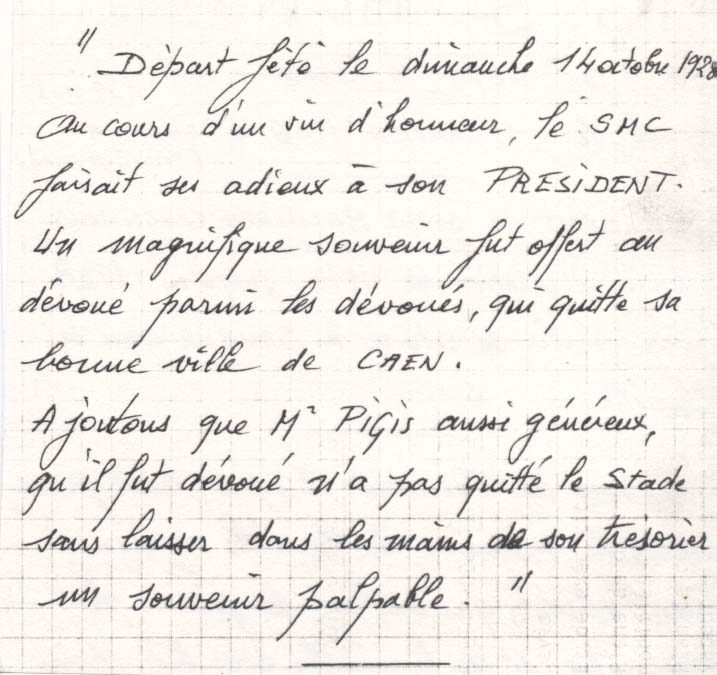 " Départ fêté le dimanche 14 octobre 1928
Au cours d'un vin d'honneur, le SMC
faisait ses adieux à son PRESIDENT.
Un magnifique souvenir fut offert au
dévoué parmi les dévoués, qui quitte sa
bonne ville de CAEN.
Ajoutons que Mr PIGIS aussi généreux,
qu'il fut dévoué n'a pas quitté le Stade
sans laisser dans les mains de son trésorier
un souvenir palpable. "